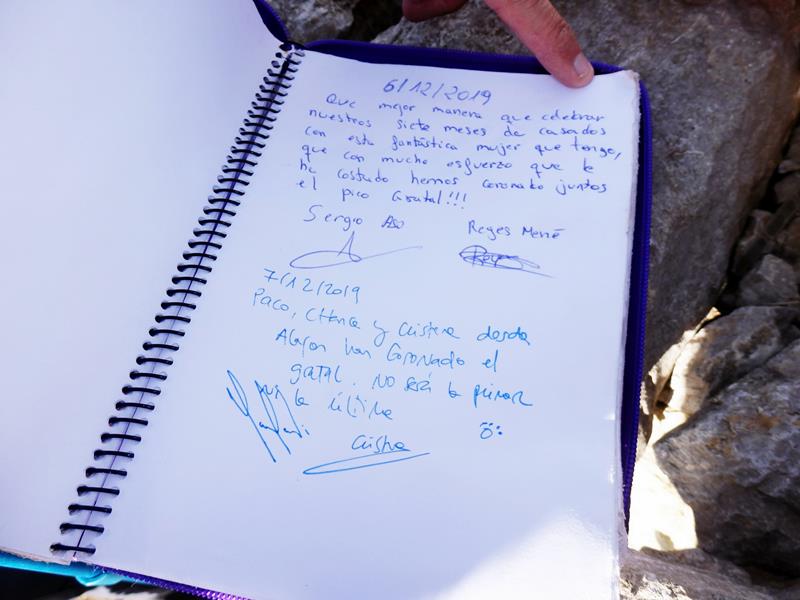 6/12/2019
Que mejor manera que celebrar
nuestros siete meses de casados
con esta fantástica mujer que tengo,
que con mucho esfuerzo que le
ha costado hemos coronado juntos
el pico Gratal!!!
Sergio Aso Reyes Mené
7/12/2019
Paco, y Cristina desde
han coronado el
gratal. No será la primera
la última